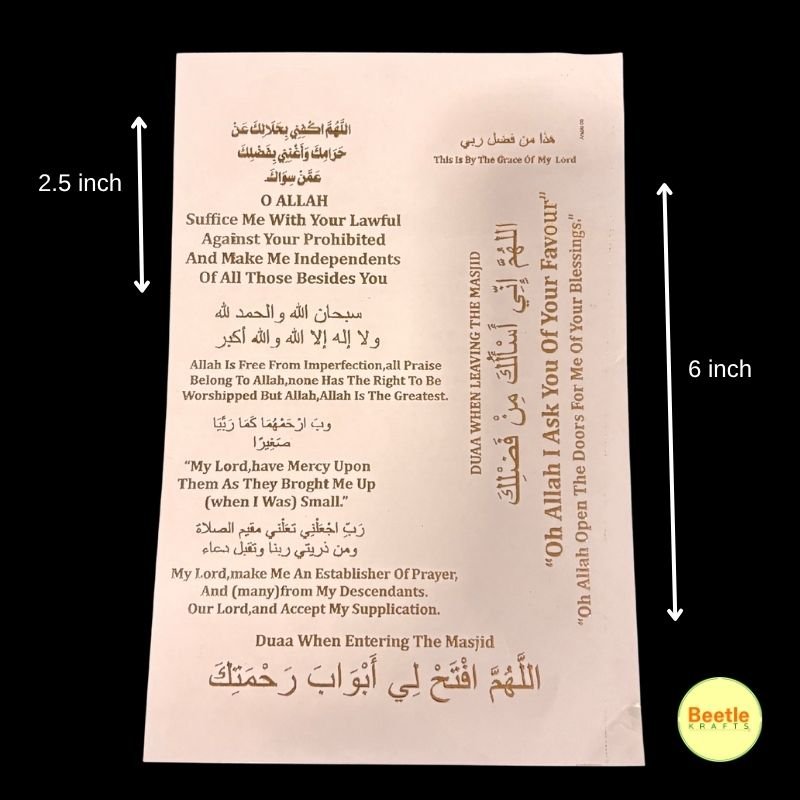 2.5 inch
اللَّهُمَّ اكْفِنِي بِحَلَالِكَ عَنْ
حَرَامِكَ وَأَغْنِنِي بِفَضْلِكَ
عَمَّنْ سِوَاكَ.
O ALLAH
Suffice Me With Your Lawful
Against Your Prohibited
And Make Me Independents
Of All Those Besides You
سبحان الله والحمد لله
ولا إله إلا الله والله أكبر
Allah Is Free From Imperfection,all Praise
Belong To Allah,none Has The Right To Be
Worshipped But Allah,Allah Is The Greatest.
وبَ ارْحَمْهُمَا كَمَا رَبَّيَا
صَغِيرًا
“My Lord,have Mercy Upon
Them As They Broght Me Up
(when I Was) Small.”
رَبِّ اجْعَلْنِي تعَلْني مقيم الصلاة
ومن ذريتي ربنا وتقبل دعاء
My Lord,make Me An Establisher Of Prayer,
And (many)from My Descendants.
Our Lord,and Accept My Supplication.
Duaa When Entering The Masjid
اللَّهُمَّ افْتَحْ لِي أَبْوَابَ رَحْمَتِكَ
هذا من فضل ربي
This Is By The Grace Of My Lord
DUAA WHEN LEAVING THE MASJID
اللهُمَّ إِنِّي أَسْأَلُكَ مِنْ فَضْلِكَ
“Oh Allah I Ask You Of Your Favour”
“Oh Allah Open The Doors For Me Of Your Blessings.”
6 inch
Beetle
KRAFTS